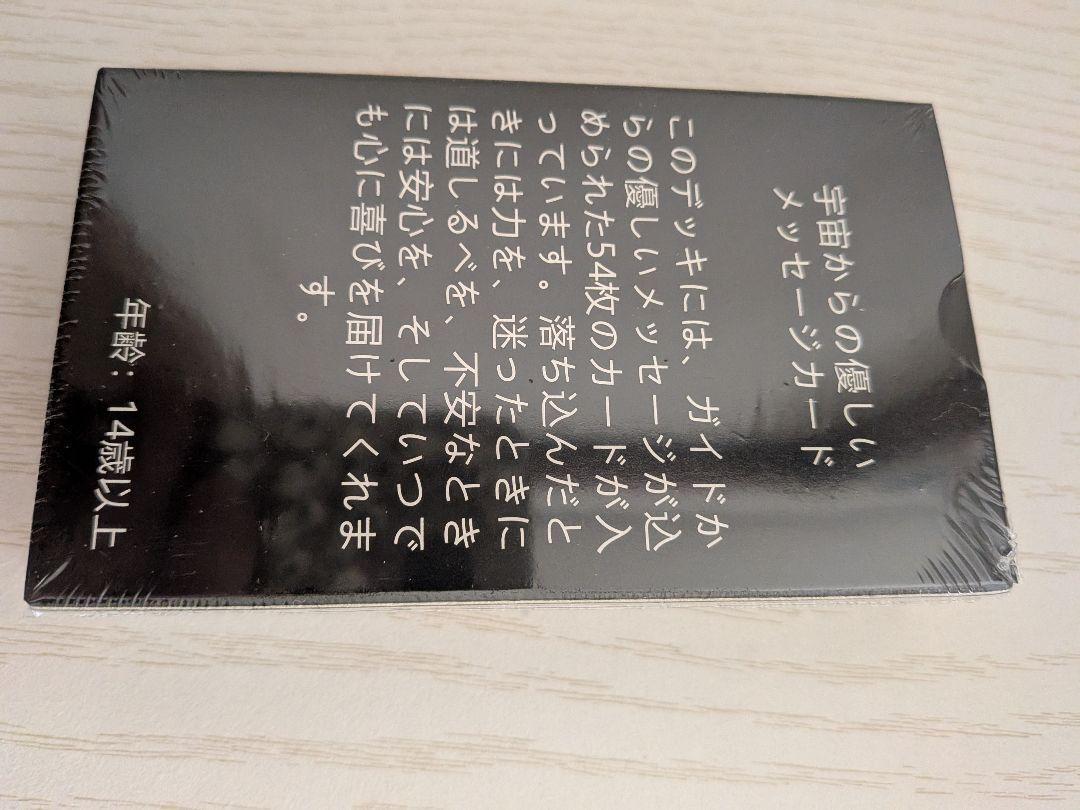 宇宙からの優しい
メッセージカード
このデッキには、ガイドか
らの優しいメッセージが込
められた54枚のカードが入
っています。落ち込んだと
きには力を、迷ったときに
は道しるべを、不安なとき
には安心を、そしていつで
も心に喜びを届けてくれま
す。
年齢：14歳以上